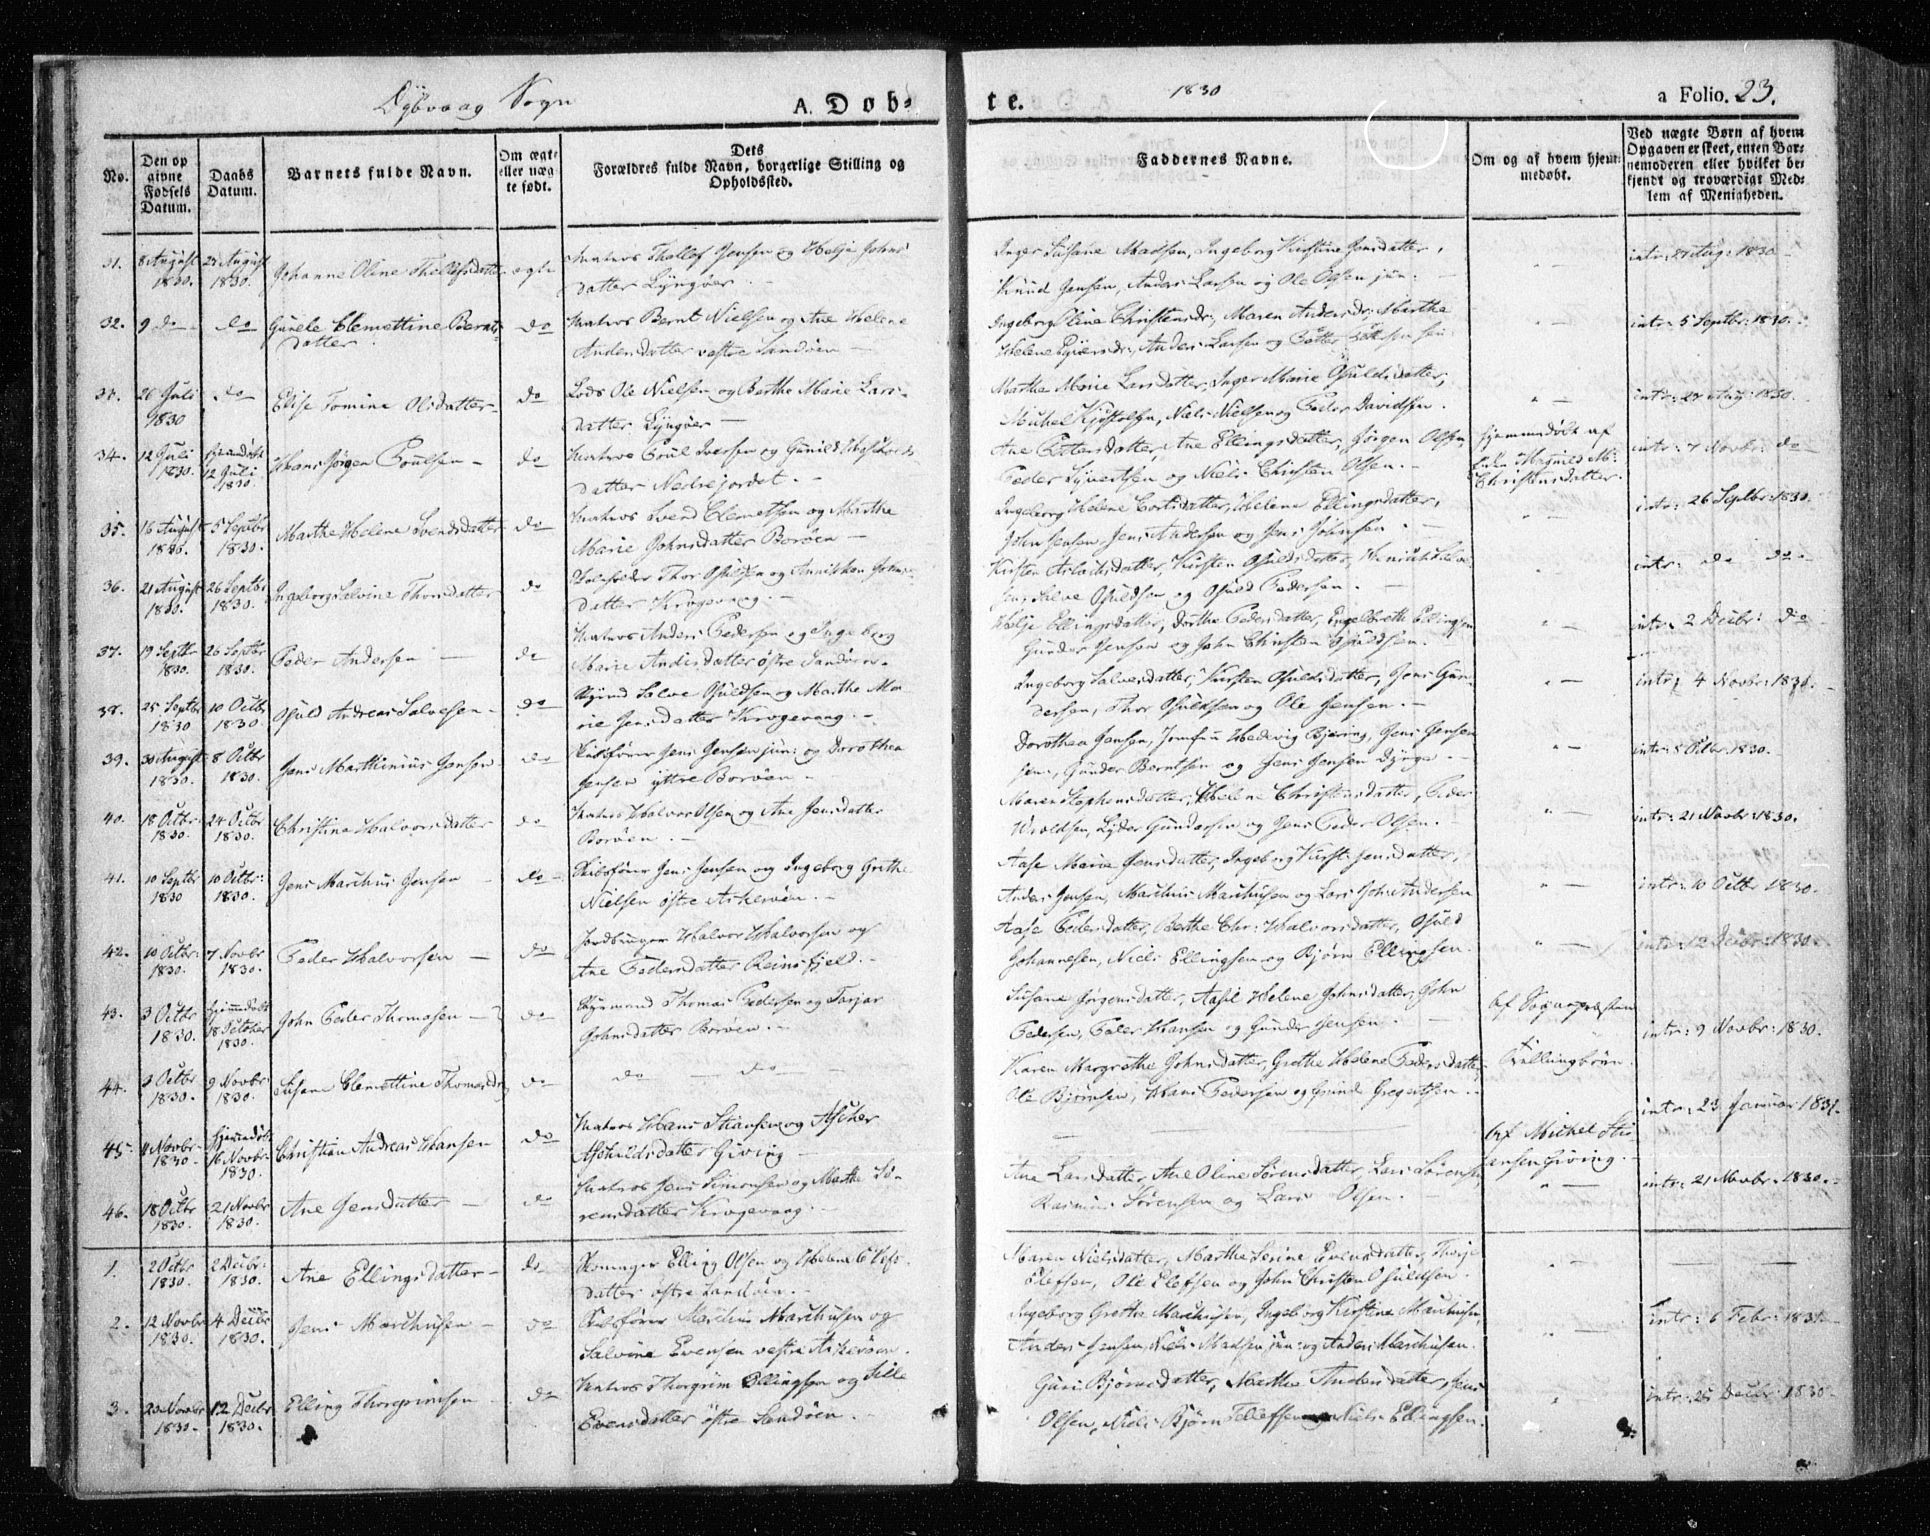 Dybvaag Sogn
A. Døb-
te.
1830
a Folio. 23.
No.
Den op
givne
Fødsels
Datum.
Daabs
Datum.
Barnets fulde Navn.
Om ægte
eller uæg
te født.
Dets
Forældres fulde Navn, borgerlige Stilling og
Opholdssted.
Faddernes Navne.
Om og af hvem hjem-
medøbt.
Ved uægte Børn af hvem
Opgaven er skeet, enten Bar-
nemoderen eller hvilket be-
kjendt og troværdigt Med-
lem af Menigheden.
31. 8 August 1830. 29 August 1830. Johanne Oline Thellefsdatter ægte
Matros Thellef Jensen og Helje Johns-
datter Lyngøer.
Inger Susane Madsen, Ingeborg Kirstine Jensdatter,
Knud Jensen, Anders Larsen og Ole Olsen jun:
intr: 29 Aug: 1830
32. 9 do do Gunele Clemettine Bernts-
datter. do
Matros Bernt Nielsen og Ane Helene
Andersdatter vestre Sandøen
Ingeborg Oline Christensdr:, Maren Andersdr:, Marthe
Helene, Anders Larsen og Petter sen:
intr: 5 Septbr: 1830.
33. 26 Juli 1830 do Elise Tomine Olsdatter do
Lods Ole Nielsen og Berthe Marie Lars-
datter Lyngøer
Marthe Marie Larsdatter, Inger Marie Osuldsdatter,
Michel Kjøstolsen, Niels Nielsen og Peder Davidsen.
intr: 29 Aug: 1830.
34. 12 Juli 1830. hjemdøbt 12 Juli 1830. Hans Jørgen Poulsen do
Matros Poul Iversen og Gunild
datter Nedrejordet.
Ane Pettersdatter, Ane Ellingsdatter, Jørgen Olsen,
Peder Syvertsen og Niels Christen Olsen.
hjemmedøbt af
Magnild M:
Christensdatter.
intr: 7 Novbr: do
35. 16 August 1830. 5 Septbr 1830. Marthe Helene Svendsdatter do
Matros Svend Clemetsen og Marthe
Marie Johnsdatter Borøen
Ingeborg Helene datter, Helene Ellingsdatter,
John Jensen, Jens Andersen og Jens Johnsen
intr: 26 Septbr: 1830.
36. 21 August 1830. 26 Septbr 1830. Ingeborg Selvine Thorsdatter do
Thor Osuldsen og Anniken
datter Krogevaag.
Kirsten datter, Kirsten Osuldsdatter,
Salve Osuldsen og Osuld Pedersen.
intr: do do
37. 19 Septbr 1830. 26 Septbr 1830. Peder Andersen do
Matros Anders Pedersen og Ingeborg
Marie Andersdatter østre Sandøen.
Helje Ellingsdatter, Dorthe Pedersdatter, Engelbreth Ellingsen
Gunder Jensen og John Christen Osuldsen.
intr: 2 Decbr: do
38. 25 Septbr 1830 10 Octbr 1830. Osuld Andreas Salvesen do
Salve Osuldsen og Marthe Ma-
rie Jensdatter Krogevaag.
Ingeborg Salvesdatter, Kirsten Osuldsdatter, Jens Gun-
dersen, Thor Osuldsen og Ole Jensen.
intr: 4 Novbr: 1830.
39. 30 August 1830. 8 Octbr 1830. Jens Marthinius Jensen do
Skibsfører Jens Jensen jun: og Dorothea
Jensen yttre Borøen
Dorothea Jensen, Jomfru Hedevig Bjering, Jens Jensen
sen:, Gunder Berntsen og Jens Jensen Dynge.
intr: 8 Octbr 1830.
40. 18 Octbr: 1830. 24 Octbr 1830. Christine Halvorsdatter do
Matros Halvor Olsen og Ane Jensdatter
Borøen.
Maren Stephensdatter, Helene Christensdatter, Peder
Wroldsen, Lyder Gundersen og Jens Peder Olsen.
intr: 21 Novbr: 1830.
41. 10 Septbr 1830 10 Octbr: 1830. Jens Marchus Jensen do
Skibsfører Jens Jensen og Ingeborg Grethe
Nielsen østre Askerøen.
Aase Marie Jensdatter, Ingeborg Kirst: Jensdatter,
Anders Jensen, Marchus Marchussen og Lars John Andersen
intr: 10 Octbr 1830.
42. 10 Octbr: 1830. 7 Novbr 1830. Peder Halvorsen do
Jordbruger Halvor Halvorsen og
Ane Pedersdatter Reinsfjeld.
Aase Pedersdatter, Berthe Chr: Halvorsdatter, Osuld
Johannesen, Niels Ellingsen og Bjørn Ellingsen.
intr: 12 Decbr: 1830.
43. 3 Octbr 1830. hjemmedøbt 18 October 1830. John Peder Thomasen do
Styrmand Thomas Pedersen og Torjør
Johnsdatter Borøen.
Susane Jørgensdatter, Aasil Helene Johnsdatter, John
Pedersen, Peder Hansen og Gunder Jensen.
Af Sognepræsten
+
Tvillingbørn.
intr: 9 Novbr: 1830.
44. 3 Octbr 1830. 9 Novbr: 1830. Susane Clemettine Thomasdr do
do do
Karen Margrethe Johnsdatter, Grethe Helene Pedersdatter,
Ole Bjørnsen, Hans Pedersen og Gregertsen.
45. Novbr 1830. hjemmedøbt 16 Novbr: 1830. Christian Andreas Hansen do
Matros Hans Stiansen og
datter Giving
Af Michel Sti-
ansen Giving.
intr: 23 Januar 1831.
46. 18 Octbr 1830. 21 Novbr 1830. Ane Jensdatter do
Matros Jens Simonsen og Marthe Sø-
rensdatter Krogevaag.
Ane Larsdatter, Ane Oline Sørensdatter, Lars Sørensen
Rasmus Sørensen og Lars Olsen.
intr: 21 Novbr. 1830.
1. 2 Octbr 1830. 2 Decbr: 1830. Ane Ellingsdatter do
Elling Olsen og Helene
datter østre Sandøen.
Maren Nielsdatter, Marthe Serine Evensdatter, Thorje
Elefsen, Ole Elefsen og John Christen Osuldsen.
2. 12 Novbr 1830. 4 Decbr 1830. Jens Marchusen do
Skibsfører Marchus Marchusen og
Salvine Evensen vestre Askerøen.
Ingeborg Grethe Marchusen, Ingeborg Kirstine Marchusen,
Anders Jensen, Niels Madsen jun: og Anders Marchusen.
intr: 6 Febr: 1831
3. 20 Novbr 1830. 12 Decbr 1830. Elling Thorgrimsen do
Matros Thorgrim Ellingsen og Sille
Evensdatter østre Sandøen.
Guri Bjørnsdatter, Marthe Andersdatter, Jens
Olsen, Niels Bjørn Tellefsen og Niels Ellingsen.
intr: 25 Decbr: 1830